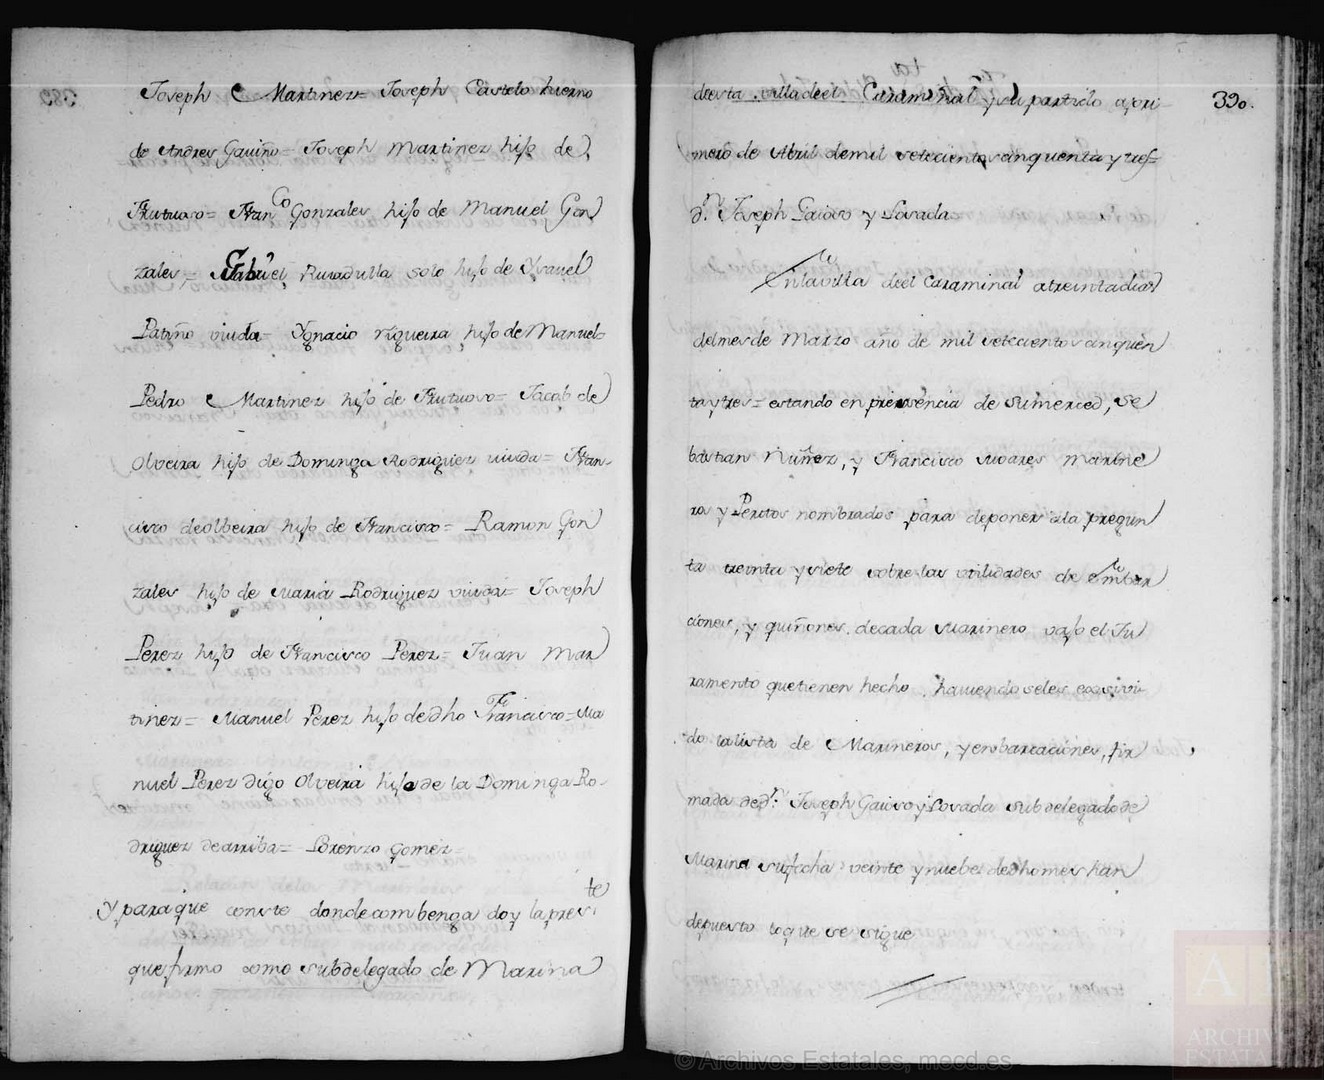 Joseph Martinez= Joseph Castelo hierno
de Andres Gaviño= Joseph Martinez hijo de
Frutuoso= Fran.co Gonzales hijo de Manuel Gon
zales= Gabriel Ruiadulla solo hijo de Ysavel
Patiño viuda= Ygnacio rigueira hijo de Manuel=
Pedro Martinez hijo de Frutuoso= Jacob de
Olveira hijo de Dominga Rodriguez viuda= Fran-
cisco de olbeira hijo de Francisco= Ramon Gon
zales hijo de Maria Rodriguez viuda= Joseph
Perez hijo de Francisco Perez= Juan Mar
tinez= Manuel Perez hijo de dho Francisco= Ma
nuel Perez digo Olveira hijo de la Dominga Ro-
driguez de arriba= Lorenzo gomez=
y para que conste donde combenga doy la pres.te
que firmo como subdelegado de Marina
390.
de esta villa de el Caramiñal y su partido a pri-
mero de Abril de mil setecientos cinquenta y tres=
d.n Joseph Gaioso y Losada
En la villa de el Caramiñal a treinta dias
del mes de Marzo año de mil setecientos cinquen
ta y tres= estando en pressencia de su merced, se
bastian Nuñez, y Francisco suares Marine
ros y Peritos nombrados para deponer a la pregun
ta treinta y siete sobre las utilidades de embar
ciones, y quiñones de cada Marinero vajo el Ju
ramento que tienen hecho haviendoseles exsivi-
do la lista de Marineros, y embarcaciones, fir
mada de d.n Joseph Gaioso y Losada subdelegado de
Marina su fecha veinte y nuebe de dho mes han
depuesto lo que se sigue
© Archivos Estatales, mecd.es
ARCHIV
ESTATA